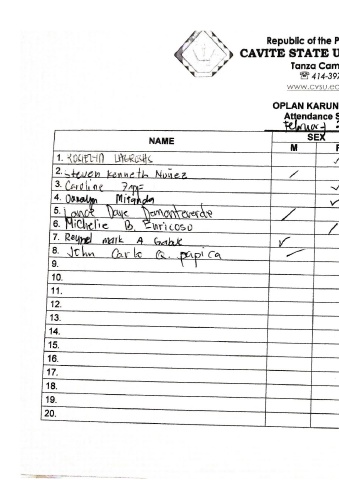 Republic of the P
CAVITE STATE U
Tanza Cam
☏ 414-397
www.cvsu.ed
OPLAN KARUN
Attendance S
February
NAME SEX
M F
1.
2. Steven Kenneth Nuñez
3. Caroline
4. Miranda
5. Lance Dave Demonteverde
6. Michelle B. Enricoso
7. Reymel mark A
8. John Carlo G. papica
9.
10.
11.
12.
13.
14.
15.
16.
17.
18.
19.
20.